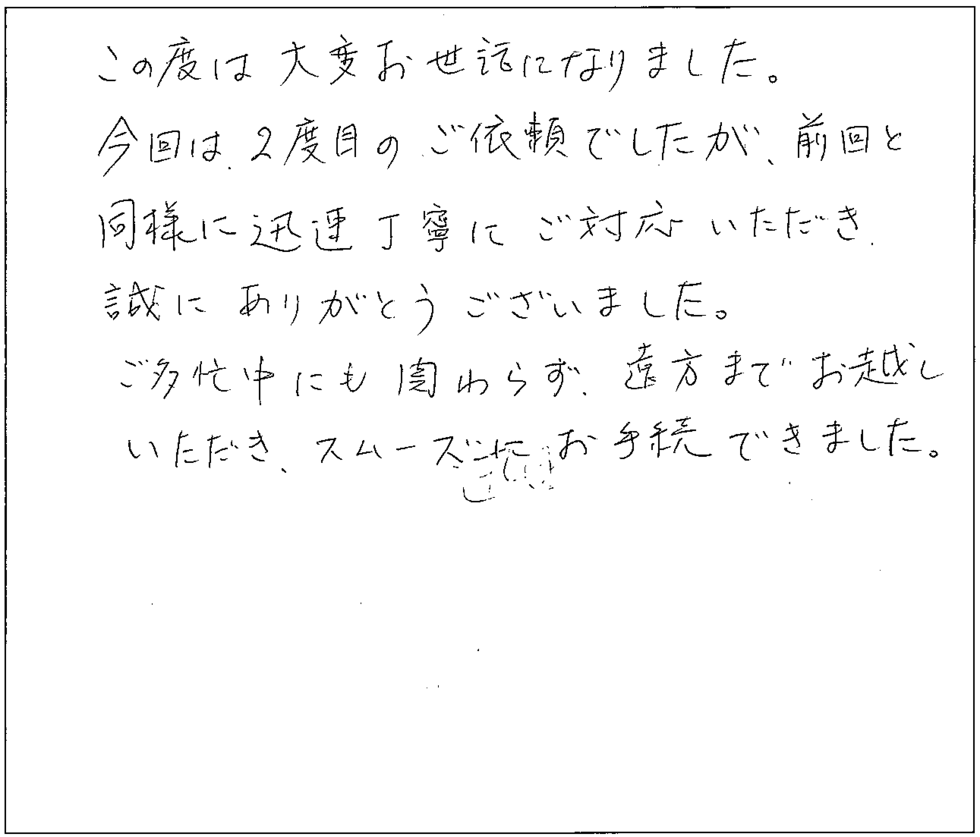 この度は大変お世話になりました。
今回は、2度目のご依頼でしたが、前回と
同様に迅速丁寧にご対応いただき、
誠にありがとうございました。
ご多忙中にも関わらず、遠方までお越し
いただき、スムーズにお手続できました。